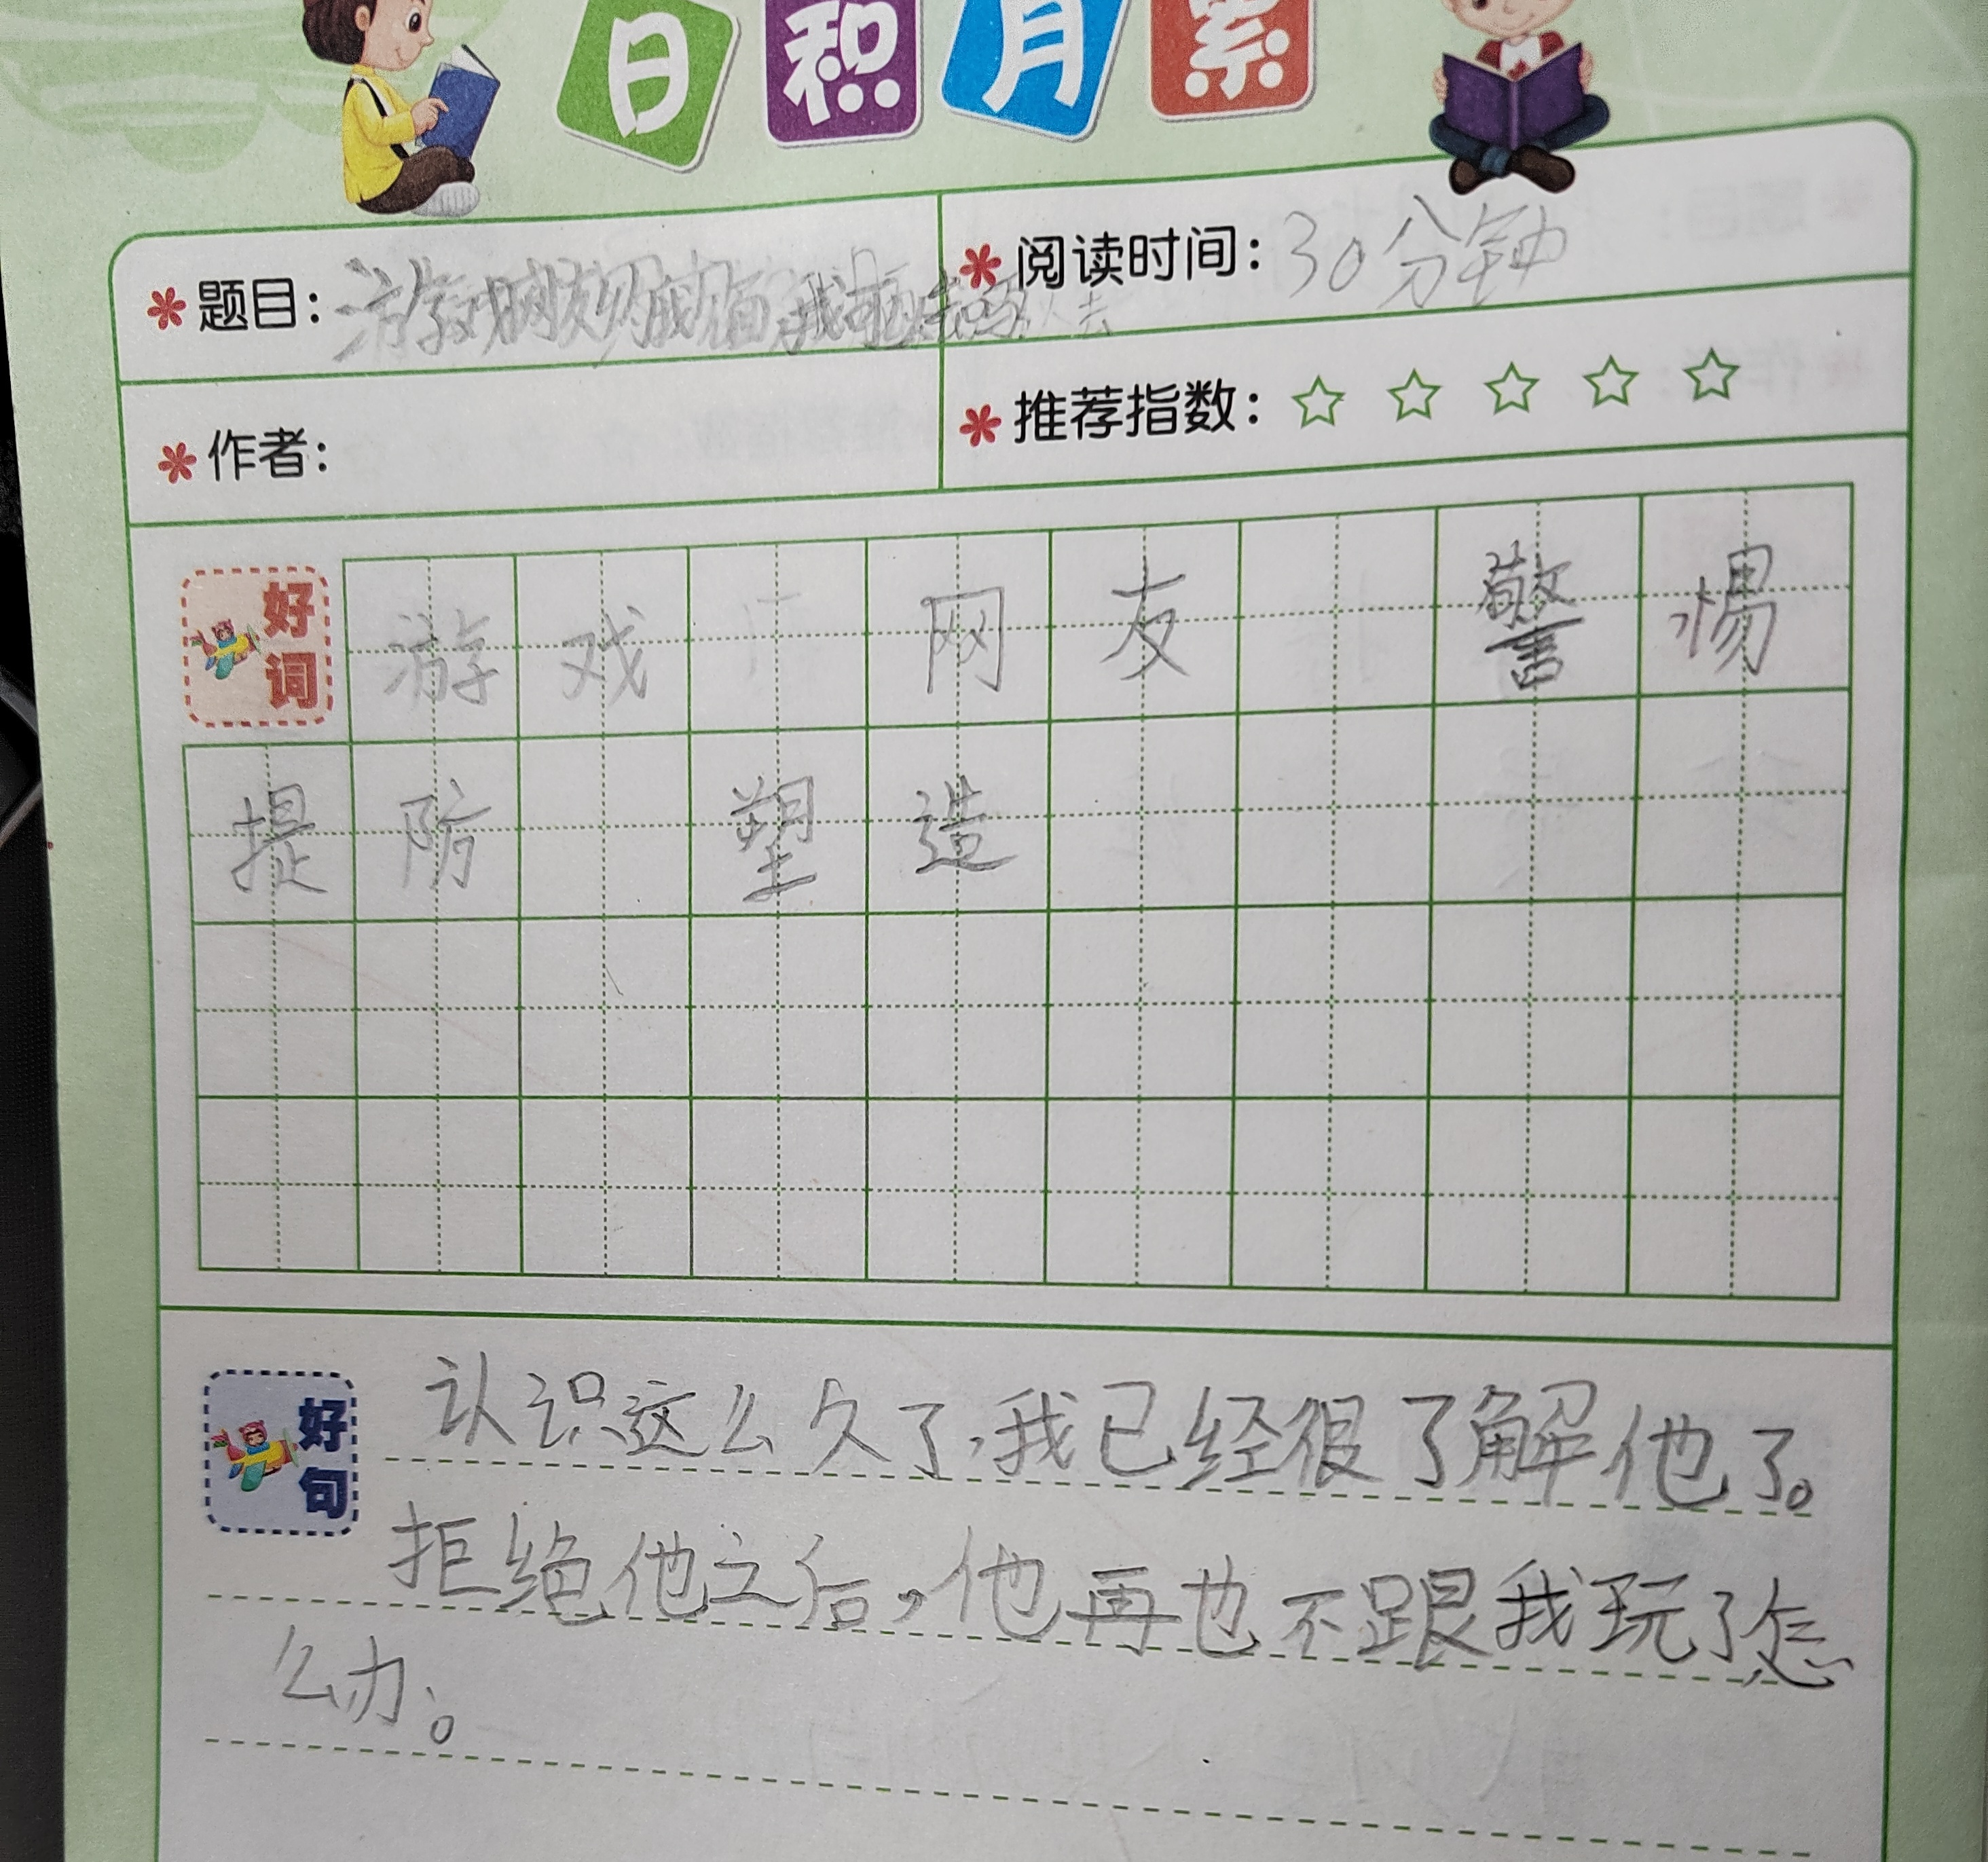 日积月累
题目：游戏网友约我见面，我可以去吗
阅读时间：30分钟
作者：
推荐指数：
好词
游戏 网友 警惕
提防 塑造
好句
认识这么久了，我已经很了解他了。
拒绝他之后，他再也不跟我玩了怎
么办。